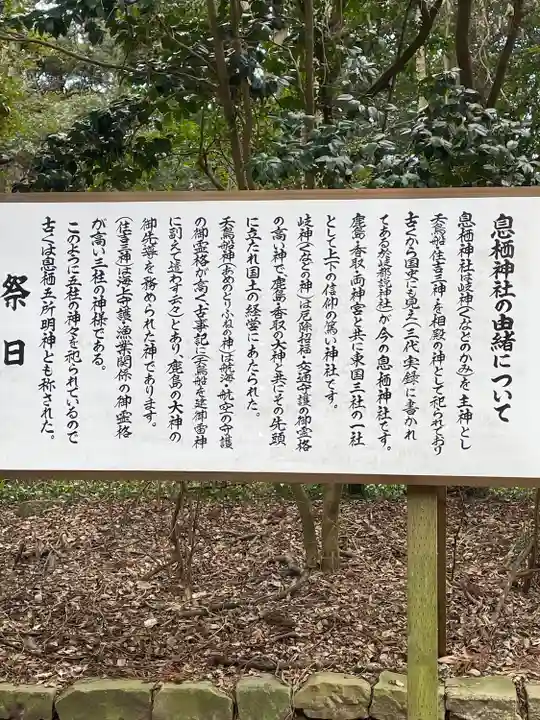 息栖神社の由緒について
息栖神社は岐神(くなどのかみ)を主神とし
天鳥船・住吉三神を相殿の神として祀られており
古くから国史にも見え(三代実録に書かれ
てある於岐都説神社)が今の息栖神社です。
鹿島・香取・両神宮と共に東国三社の一社
として上下の信仰の篤い神社です。
岐神(くなどの神)は厄除招福・交通守護の御霊格
の高い神で鹿島・香取の大神と共にその先頭
に立たれ国土の経営にあたられた。
天鳥船神(あめのとりふねの神)は航海・航空の守護
の御霊格が高く古事記に(天鳥船を建御雷神
に副えて遣わす云々)とあり、鹿島の大神の
御先導を務められた神であります。
(住吉三神)は海上守護・漁業関係の御霊格
が高い三柱の神様である。
このように五柱の神々を祀られているので
古くは息栖五所明神とも称された。
祭日